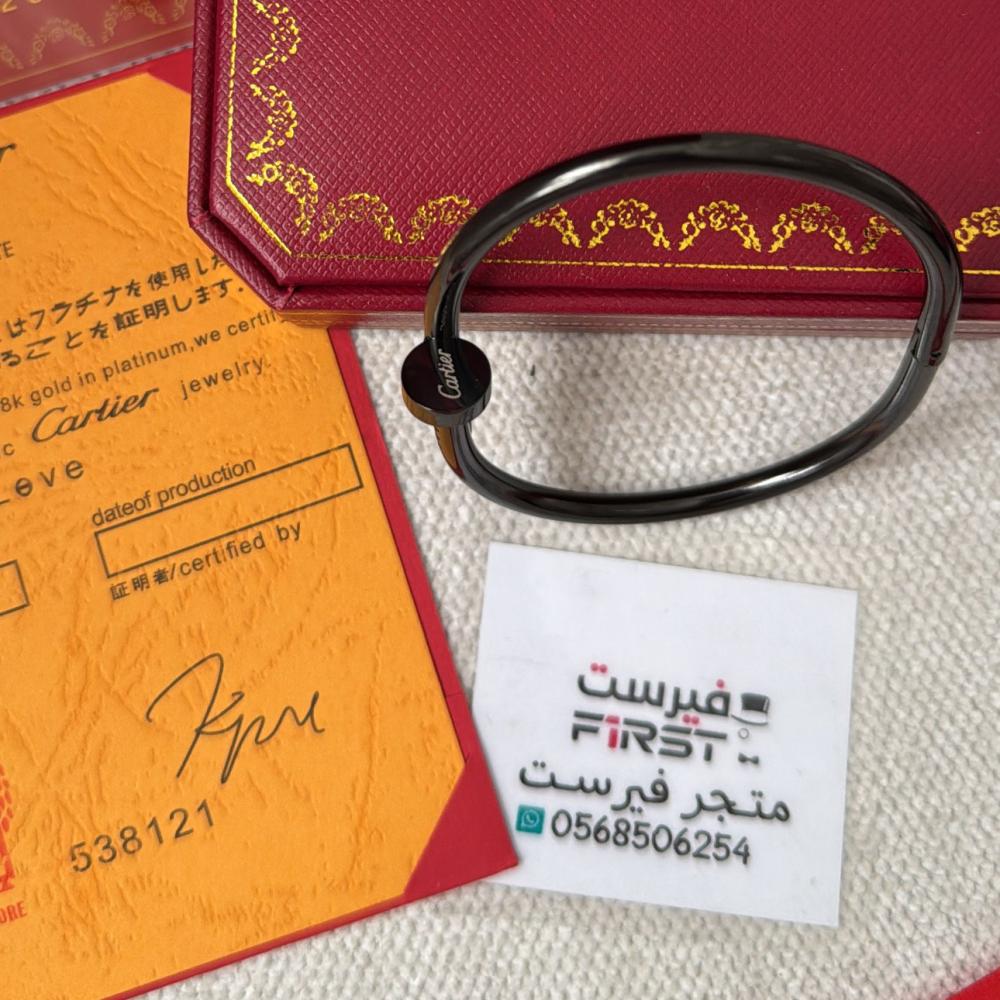 Cartier
はプラチナを使用した
ることを証明します.
8k gold in platinum, we certif
c Cartier jewelry.
Love
dateof production
証明者/certified by
538121
فيرست
F1RST
متجر فيرست
0568506254